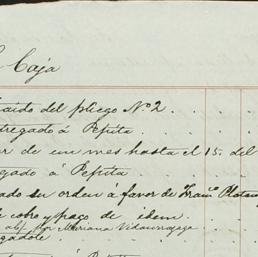 Caja
del pliego Nº 2
tregado á Pepita
r de un mes hasta el 15. del
gado á Pepita
ado su orden á favor de Fran.co
e cobro y pago de idem
por Mariana
gadole